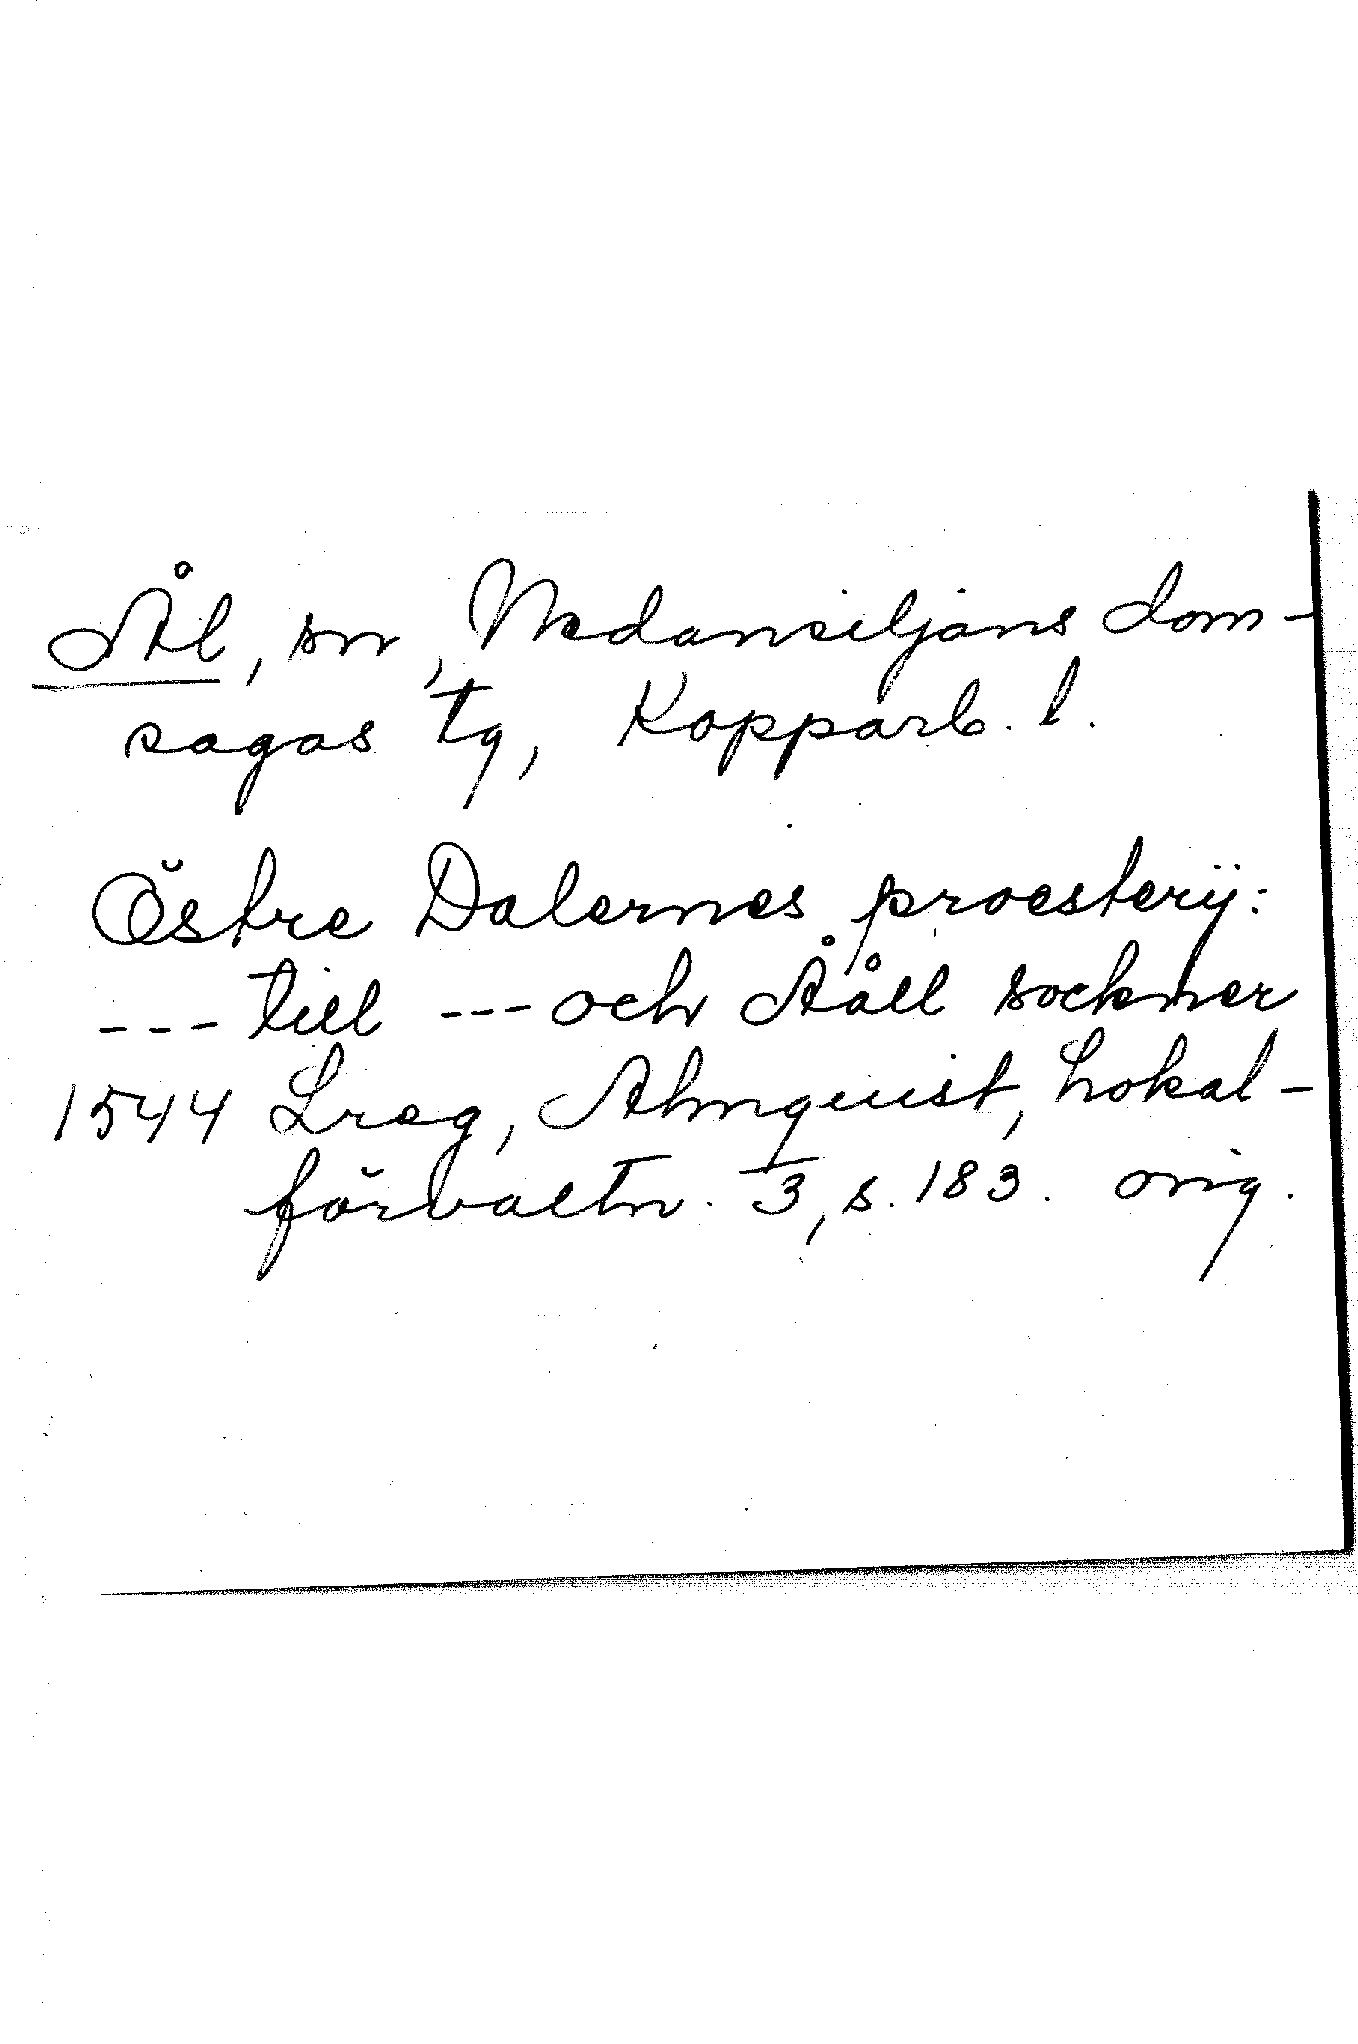 Ål, sn, Nedansiljans dom-
sagas tg, Kopparb. l.
Östre Dalernes proesterij:
--- till --- och Ååll sockner
1544 Lreg, Almquist, Lokal-
förvaltn. 3, s. 183. orig.